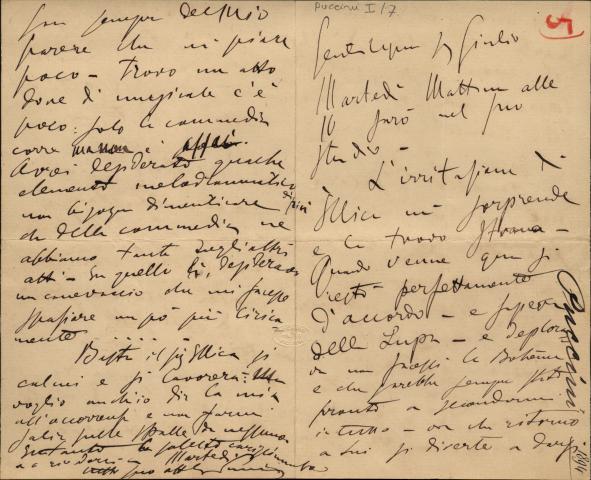 Puccini I/7
5
Gentilissimo Sig Giulio
Martedì Mattina alle
10 sarò nel suo
studio –
L'irritazione d'
Illica mi sorprende
e la trovo strana –
Quando venne qua si
restò perfettamente
d'accordo – e sapeva
della Lupa – e deplora
va non facessi la Bohème
e che sarebbe sempre stato
pronto a secondarmi
in tutto – ora che ritorno
a lui si diverte a darsi
Puccini
son sempre dell'mio
parere che mi piace
poco – trovo un atto
dove di musicale c'è
poco: solo la commedia
corre ma non è assai.
Avrei desiderato qualche
elemento melodrammatico
di più
non bisogna dimenticare
che della commedia ne
abbiamo tanta negli altri
atti – In quello lì, desideravo
un canevaccio che mi facesse
spaziare un pò più lirica
mente
Basta il sig Illica si
calmi e si lavorerà:
voglio anch'io dir la mia
all'occorrenza e non farmi
salir sulle spalle da nessuno
Intanto la saluto
a rivederci a Martedì